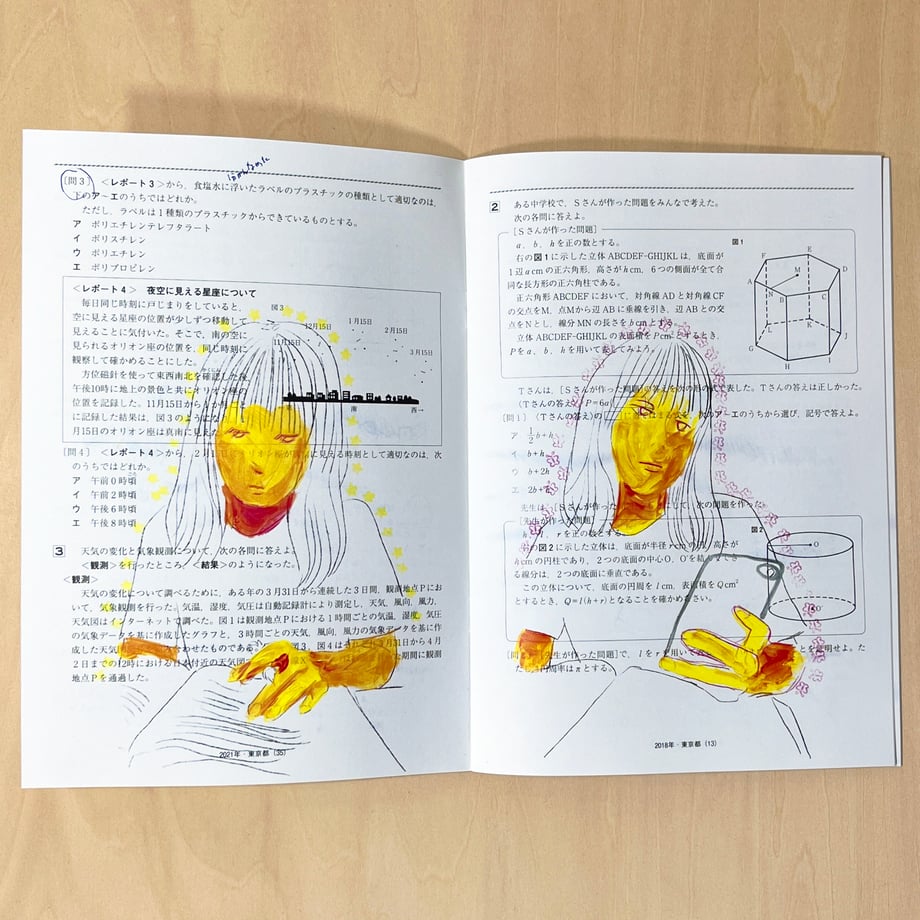 〔問3〕 <レポート3>から、食塩水に浮いたラベルのプラスチックの種類として適切なのは、
下のア～エのうちではどれか。
ただし、ラベルは1種類のプラスチックからできているものとする。
ア ポリエチレンテレフタラート
イ ポリスチレン
ウ ポリエチレン
エ ポリプロピレン
<レポート4> 夜空に見える星座について
毎日同じ時刻に戸じまりをしていると、
空に見える星座の位置が少しずつ移動して
見えることに気付いた。そこで、南の空に
見られるオリオン座の位置を、同じ時刻に
観察して確かめることにした。
方位磁針を使って東西南北を確認した後、
午後10時に地上の景色と共にオリオン座の
位置を記録した。11月15日から
に記録した結果は、図3のように
月15日のオリオン座は真南に見えた
図3
1月15日
12月15日
2月15日
11月15日
3月15日
南
西→
〔問4〕 <レポート4>から、2月1 オリオン座が に見える時刻として適切なのは、次
のうちではどれか。
ア 午前0時頃
イ 午前2時頃
ウ 午後6時頃
エ 午後8時頃
3 天気の変化と気象観測について、次の各問に答えよ。
<観測>を行ったところ、<結果>のようになった。
<観測>
天気の変化について調べるために、ある年の3月31日から連続した3日間、観測地点Pにお
いて、気象観測を行った。気温、湿度、気圧は自動記録計により測定し、天気、風向、風力、
天気図はインターネットで調べた。図1は観測地点Pにおける1時間ごとの気温、湿度、気圧
の気象データを基に作成したグラフと、3時間ごとの天気、風向、風力の気象データを基に作
成した天気 わせたものである。 3、図4は 3月31日から4
2日までの12時における日本付近の天気図 期間に観測
地点Pを通過した。
2021年・東京都 (35)
2 ある中学校で、Sさんが作った問題をみんなで考えた。
次の各問に答えよ。
[Sさんが作った問題]
a、b、hを正の数とする。
右の図1に示した立体ABCDEF-GHIJKLは、底面が
1辺acmの正六角形、高さがhcm、6つの側面が全て合
同な長方形の正六角柱である。
正六角形ABCDEFにおいて、対角線ADと対角線CF
の交点をM、点Mから辺ABに垂線を引き、辺ABとの交
点をNとし、線分MNの長さをbcmとする。
立体ABCDEF-GHIJKLの表面積をPcm²とするとき、
Pをa、b、hを用いて表してみよう。
図1
F
E
A
M
D
N
B
C
L
K
G
J
H
I
Tさんは、[Sさんが作った問題]の答えを次の形の式で表した。Tさんの答えは正しかった。
〈Tさんの答え〉 P=6a(
〔問1〕 〈Tさんの答え〉の に当てはまる式を、次のア～エのうちから選び、記号で答えよ。
ア 1/2 b+h
イ b+h
ウ b+2h
エ 2b+
先生は、[Sさんが作った 、次の問題を作った
[先生が作った問題]
h、l、rを正の数とする。
の図2に示した立体は、底面が半径rcmの円、高さが
hcmの円柱であり、2つの底面の中心O、O'を結んでで
きる線分は、2つの底面に垂直である。
この立体について、底面の円周をlcm、表面積をQcm²
とするとき、Q=l(h+r)となることを確かめなさい。
図2
O
O'
〔問2〕 [先生が作った問題]で、lをrを用いて表 とを証明せよ。た
だし、円周率はπとする。
2018年・東京都 (13)